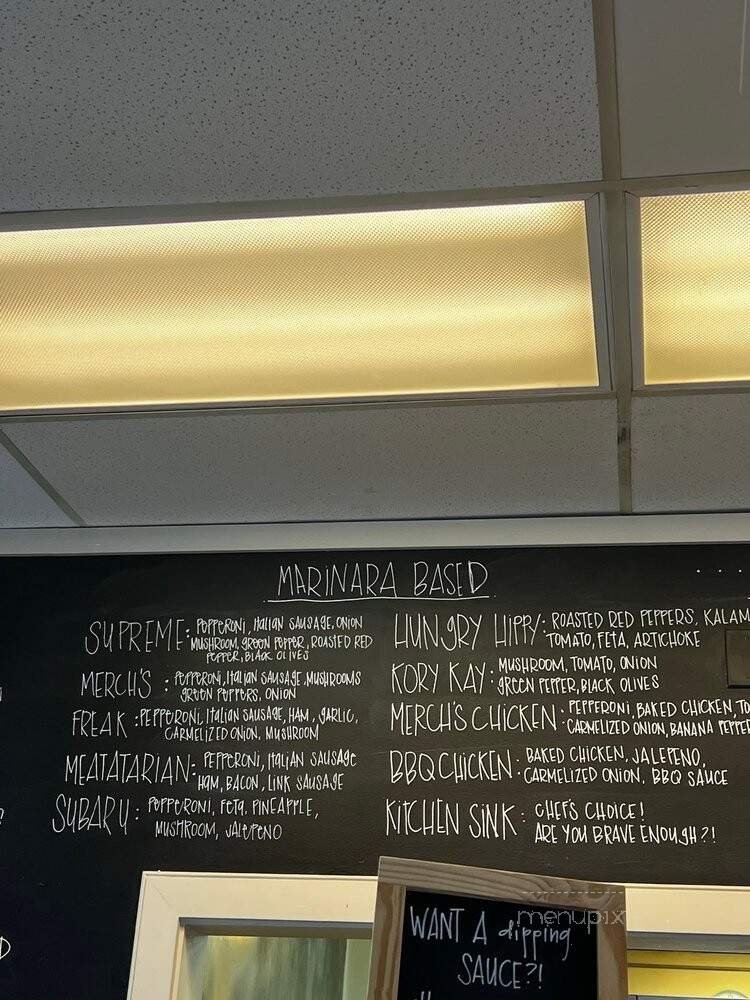 MARINARA BASED
SUPREME: PEPPERONI, ITALIAN SAUSAGE, ONION
MUSHROOM, GREEN PEPPER, ROASTED RED
PEPPER, BLACK OLIVES
MERCH'S : PEPPERONI, ITALIAN SAUSAGE, MUSHROOMS
GREEN PEPPERS, ONION
FREAK : PEPPERONI, ITALIAN SAUSAGE, HAM, GARLIC,
CARMELIZED ONION, MUSHROOM
MEATATARIAN: PEPPERONI, ITALIAN SAUSAGE
HAM, BACON, LINK SAUSAGE
SUBARU : PEPPERONI, FETA, PINEAPPLE,
MUSHROOM, JALEPENO
HUNGRY HIPPY: ROASTED RED PEPPERS, KALAM
TOMATO, FETA, ARTICHOKE
KORY KAY: MUSHROOM, TOMATO, ONION
GREEN PEPPER, BLACK OLIVES
MERCH'S CHICKEN : PEPPERONI, BAKED CHICKEN, TO
CARMELIZED ONION, BANANA PEPPER
BBQ CHICKEN : BAKED CHICKEN, JALEPENO,
CARMELIZED ONION, BBQ SAUCE
KITCHEN SINK : CHEF'S CHOICE!
ARE YOU BRAVE ENOUGH?!
WANT A dipping
SAUCE?!
menupix